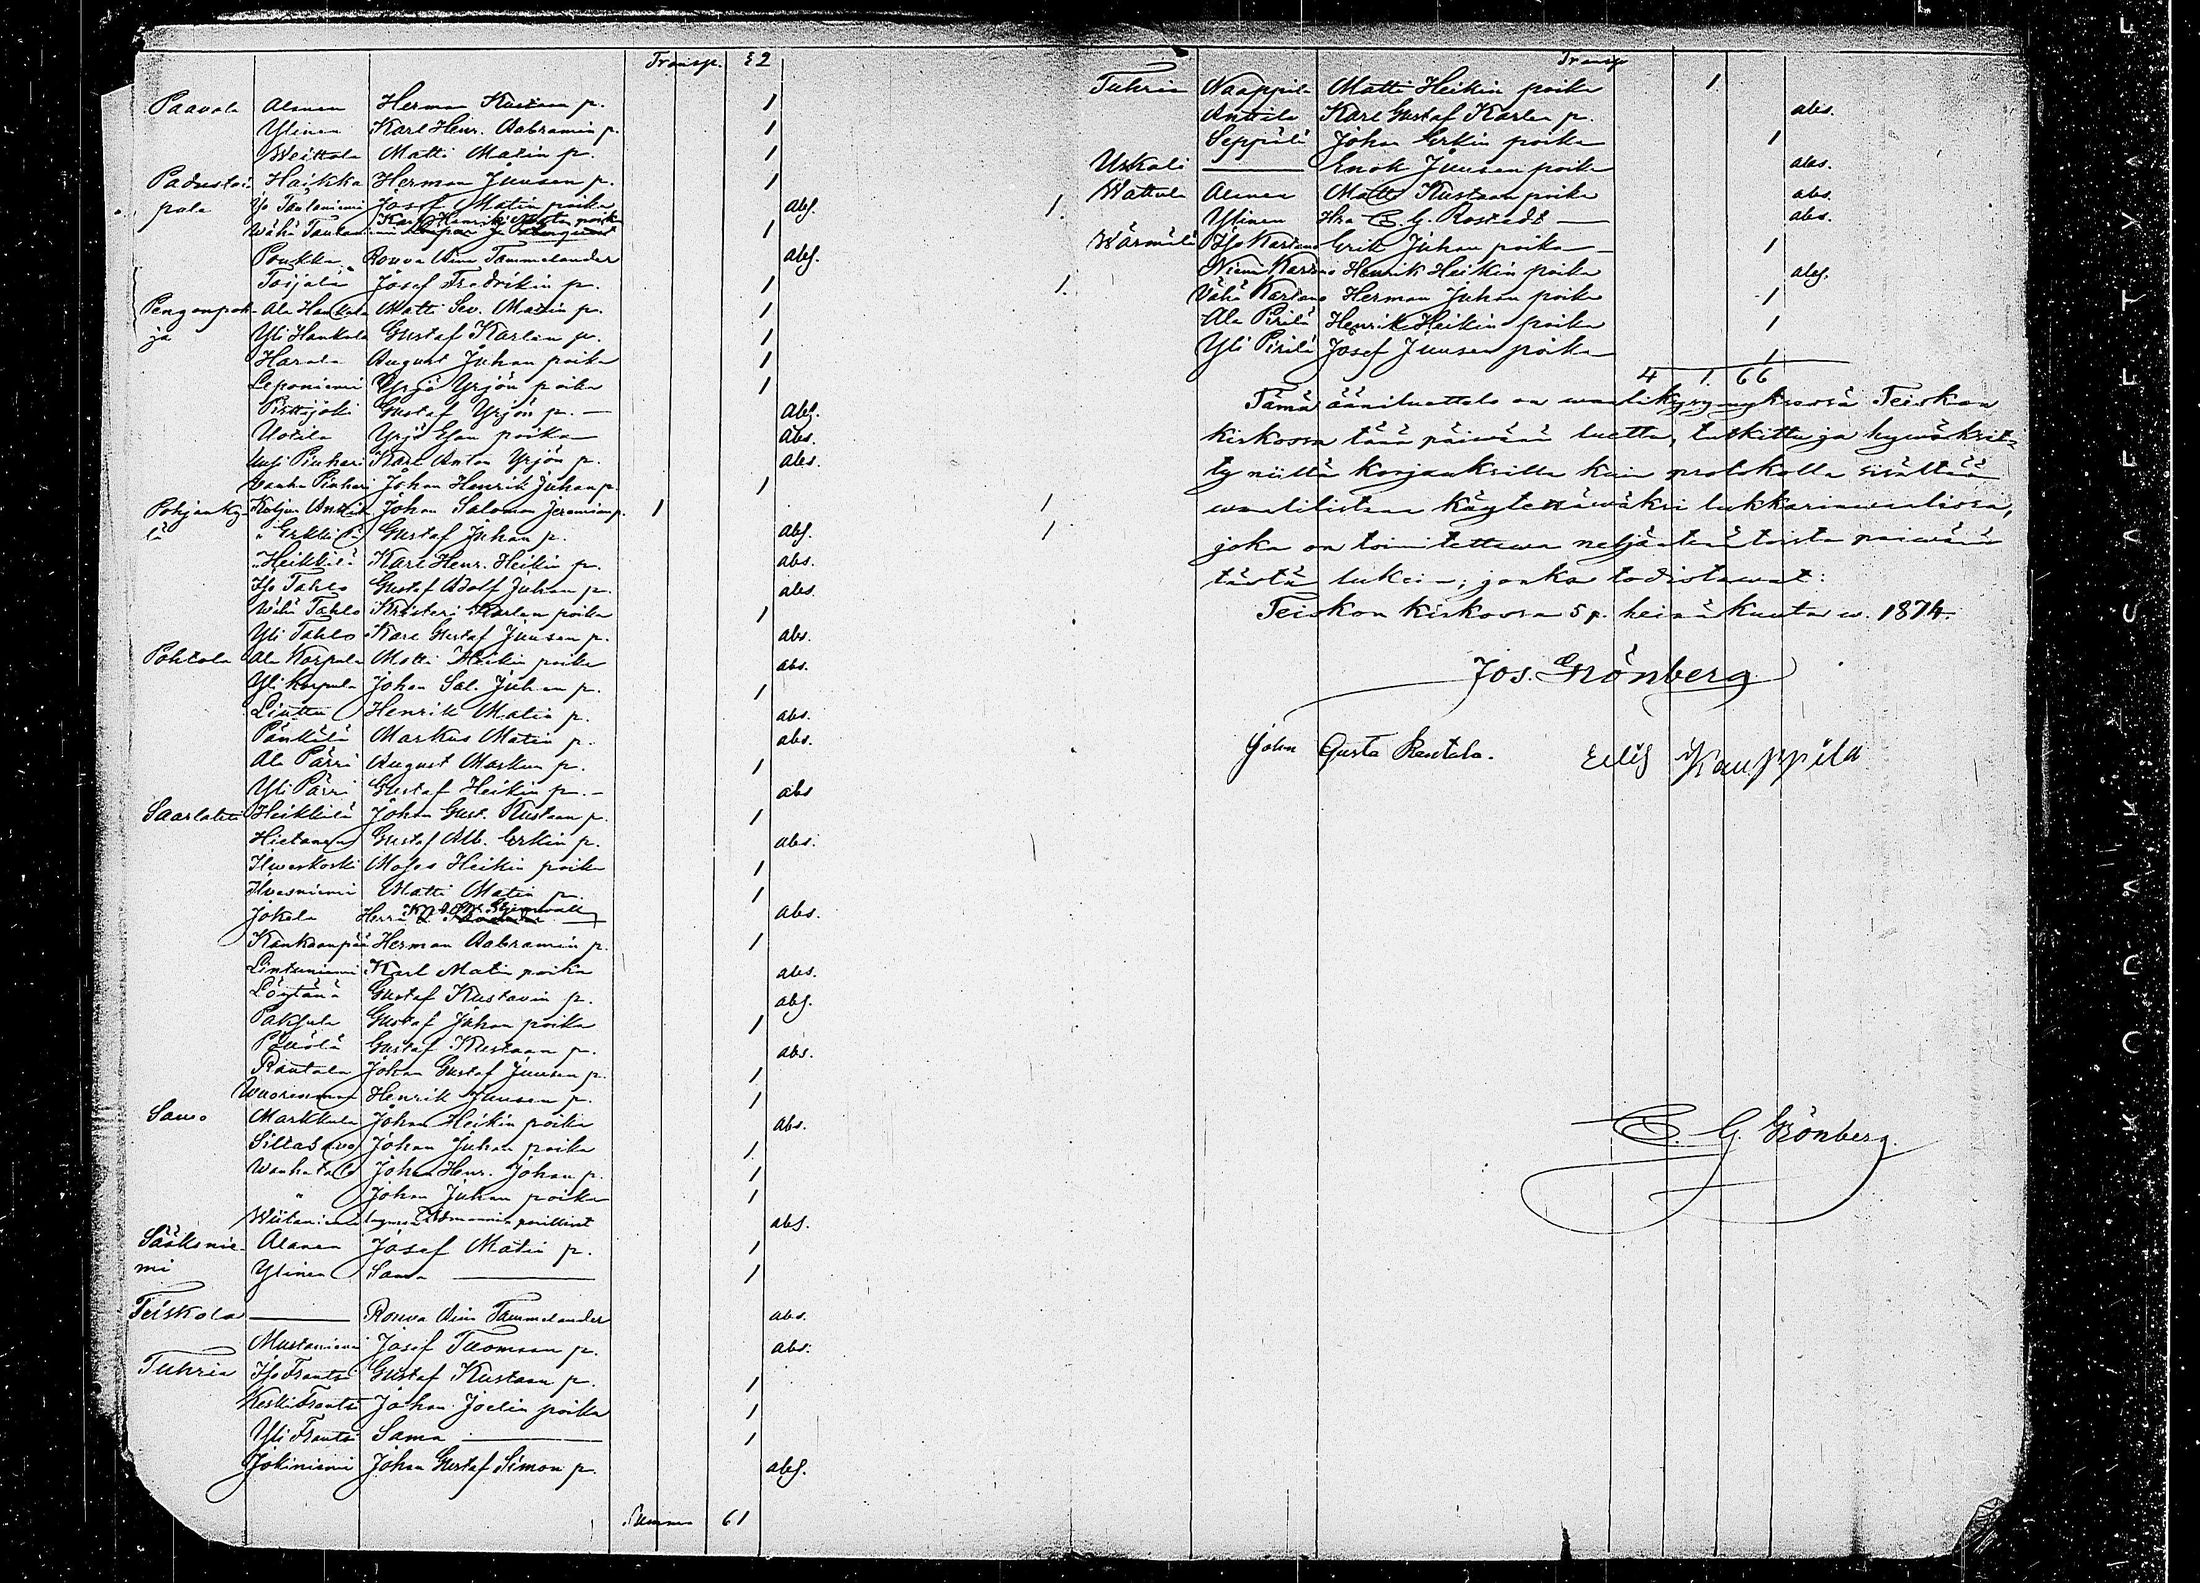 Transp. 32
Paavola Alanen Herman Kustaan p. 1
Ylinen Karl Henr. Aabramin p. 1
Weittola Matti Matin p. 1
Padustai- Haikka Herman Juusen p. 1
pala Iso Taulaniemi Josef Matin poika abs.
Wähä Taulaniemi Karl Henrik Matin poika 1
Poukka Rouva Aina Tammelander abs.
Toijala Josef Fredrikin p. 1
Pengonpoh- Ala Hankala Matti Sev. Matin p. 1
ja Yli Hankala Gustaf Karlen p. 1
Harala August Juhan poika 1
Leponiemi Yrjö Yrjön poika 1
Pirttijoki Gustaf Yrjön p. — abs.
Uotila Yrjö Esan poika abs.
Uusi Piuhari Karl Anton Yrjön p. abs.
Wanha Piuhari Johan Henrik Juhan p. 1
Pohjanky- Koljon Anttila Johan Salomon Jeremian p. 1
lä " Erkkilä Gustaf Juhan p. abs.
" Heikkilä Karl Henr. Heikin p. abs.
Iso Tahlo Gustaf Adolf Juhan p. abs.
Wähä Tahlo Kristeri Karlen poika 1
Yli Tahlo Karl Gustaf Juusen p. abs.
Pohtola Ala Korpula Matti Heikin poika abs.
Yli Korpula Johan Sal. Juhan p. 1
Liuttu Henrik Matin p. abs.
Pänkälä Markus Matin p. abs.
Ala Pärri August Markun p. 1
Yli Pärri Gustaf Heikin p. — abs
Saarlahti Heikkilä Johan Gust. Kustaan p. 1
Hietanen Gustaf Alb. Erkin p. abs.
Ilweskoski Moses Heikin poika 1
Ilvesniemi Matti Matin p. 1
Jokela Herra abs.
Kankaanpää Herman Aabramin p. 1
Lintuniemi Karl Matin poika abs.
Löytänä Gustaf Kustavin p. abs.
Paksula Gustaf Juhan poika 1
Pöllölä Gustaf Kustaan p. abs.
Rautala Johan Gustaf Juusen p. 1
Wuorenmaa Henrik Juusen p. 1
Savo Markkula Johan Heikin poika abs.
Siltasavo Johan Juhan poika 1
Wanhatalo Johan Henr. Johan p. 1
" Johan Juhan poika 1
Wiitaniemi perilliset abs.
Sääksnie- Alanen Josef Matin p. 1
mi Ylinen Sama — 1
Teiskola — Rouva Aina Tammelander abs.
Mustaniemi Josef Tuomaan p. abs.
Tuhria Iso Frantsi Gustaf Kustaan p. 1
Keski Frantsi Johan Joelin poika 1
Yli Frantsi Sama — 1
Jokiniemi Johan Gustaf Simon p. abs.
Summa 61
Transp
Tuhria Naappila Matti Heikin poika 1
Anttila Karl Gustaf Karlen p. abs.
Seppälä Johan Erkin poika 1
Uskali — Enok Juusen poika abs.
1. Wattula Alanen Matti Kustaan poika abs.
Ylinen Hra E. G. Rostedt — abs.
Wärmälä Iso Kartano Erik Juhan poika — 1
Niemi Kartano Henrik Heikin poika abs.
1. Vähä Kartano Herman Juhan poika 1
Ala Pirilä Henrik Heikin poika 1
Yli Pirilä Josef Juusen poika 1
4 1. 66
Tämä ääniluettelo on waalikysymyksessä Teiskon
kirkossa tänä päiwänä luettu, tutkittu ja hywäksit-
ty niillä korjauksilla kuin protokolla sisältää
1 waalilistana käytettäwäksi lukkarinwaalissa,
1 joka on toimitettawa neljäntenätoista päiwänä
tästä lukein; jonka todistawat:
Teiskon Kirkossa 5 p. heinäkuuta w. 1874.
Jos. Grönberg
John Gusta Rautala. Erik Kauppila
E. G. Grönberg.
KODAK SAFETY F